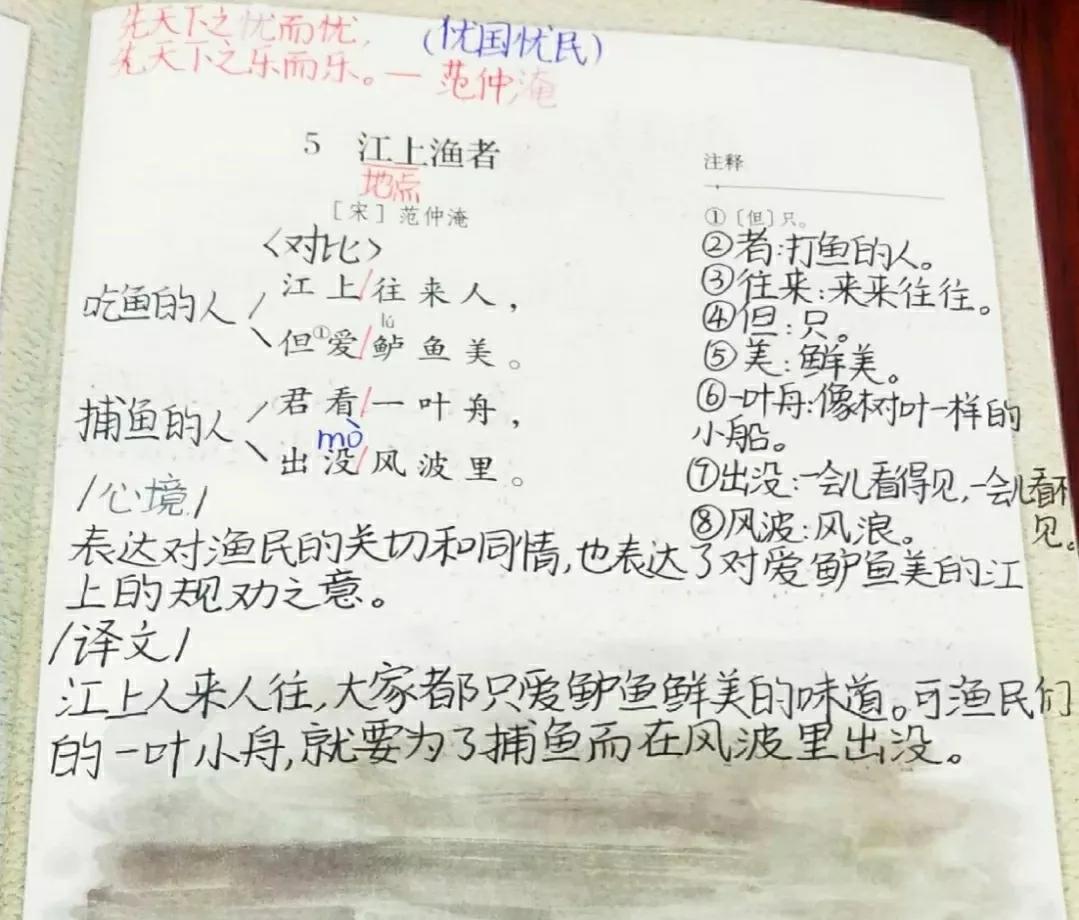 先天下之忧而忧,
(忧国忧民)
先天下之乐而乐。—范仲淹
5 江上渔者
地点
[宋] 范仲淹
〈对比〉
吃鱼的人
江上/往来人，
lú
但①爱/鲈鱼美。
捕鱼的人
君看/一叶舟，
mò
出没/风波里。
注释
①〔但〕只。
②者:打鱼的人。
③往来:来来往往。
④但:只。
⑤美:鲜美。
⑥一叶舟:像树叶一样的
小船。
⑦出没:一会儿看得见,一会儿看不
见。
⑧风波:风浪。
/心境/
表达对渔民的关切和同情,也表达了对爱鲈鱼美的江
上的规劝之意。
/译文/
江上人来人往,大家都只爱鲈鱼鲜美的味道。可渔民们
的一叶小舟,就要为了捕鱼而在风波里出没。